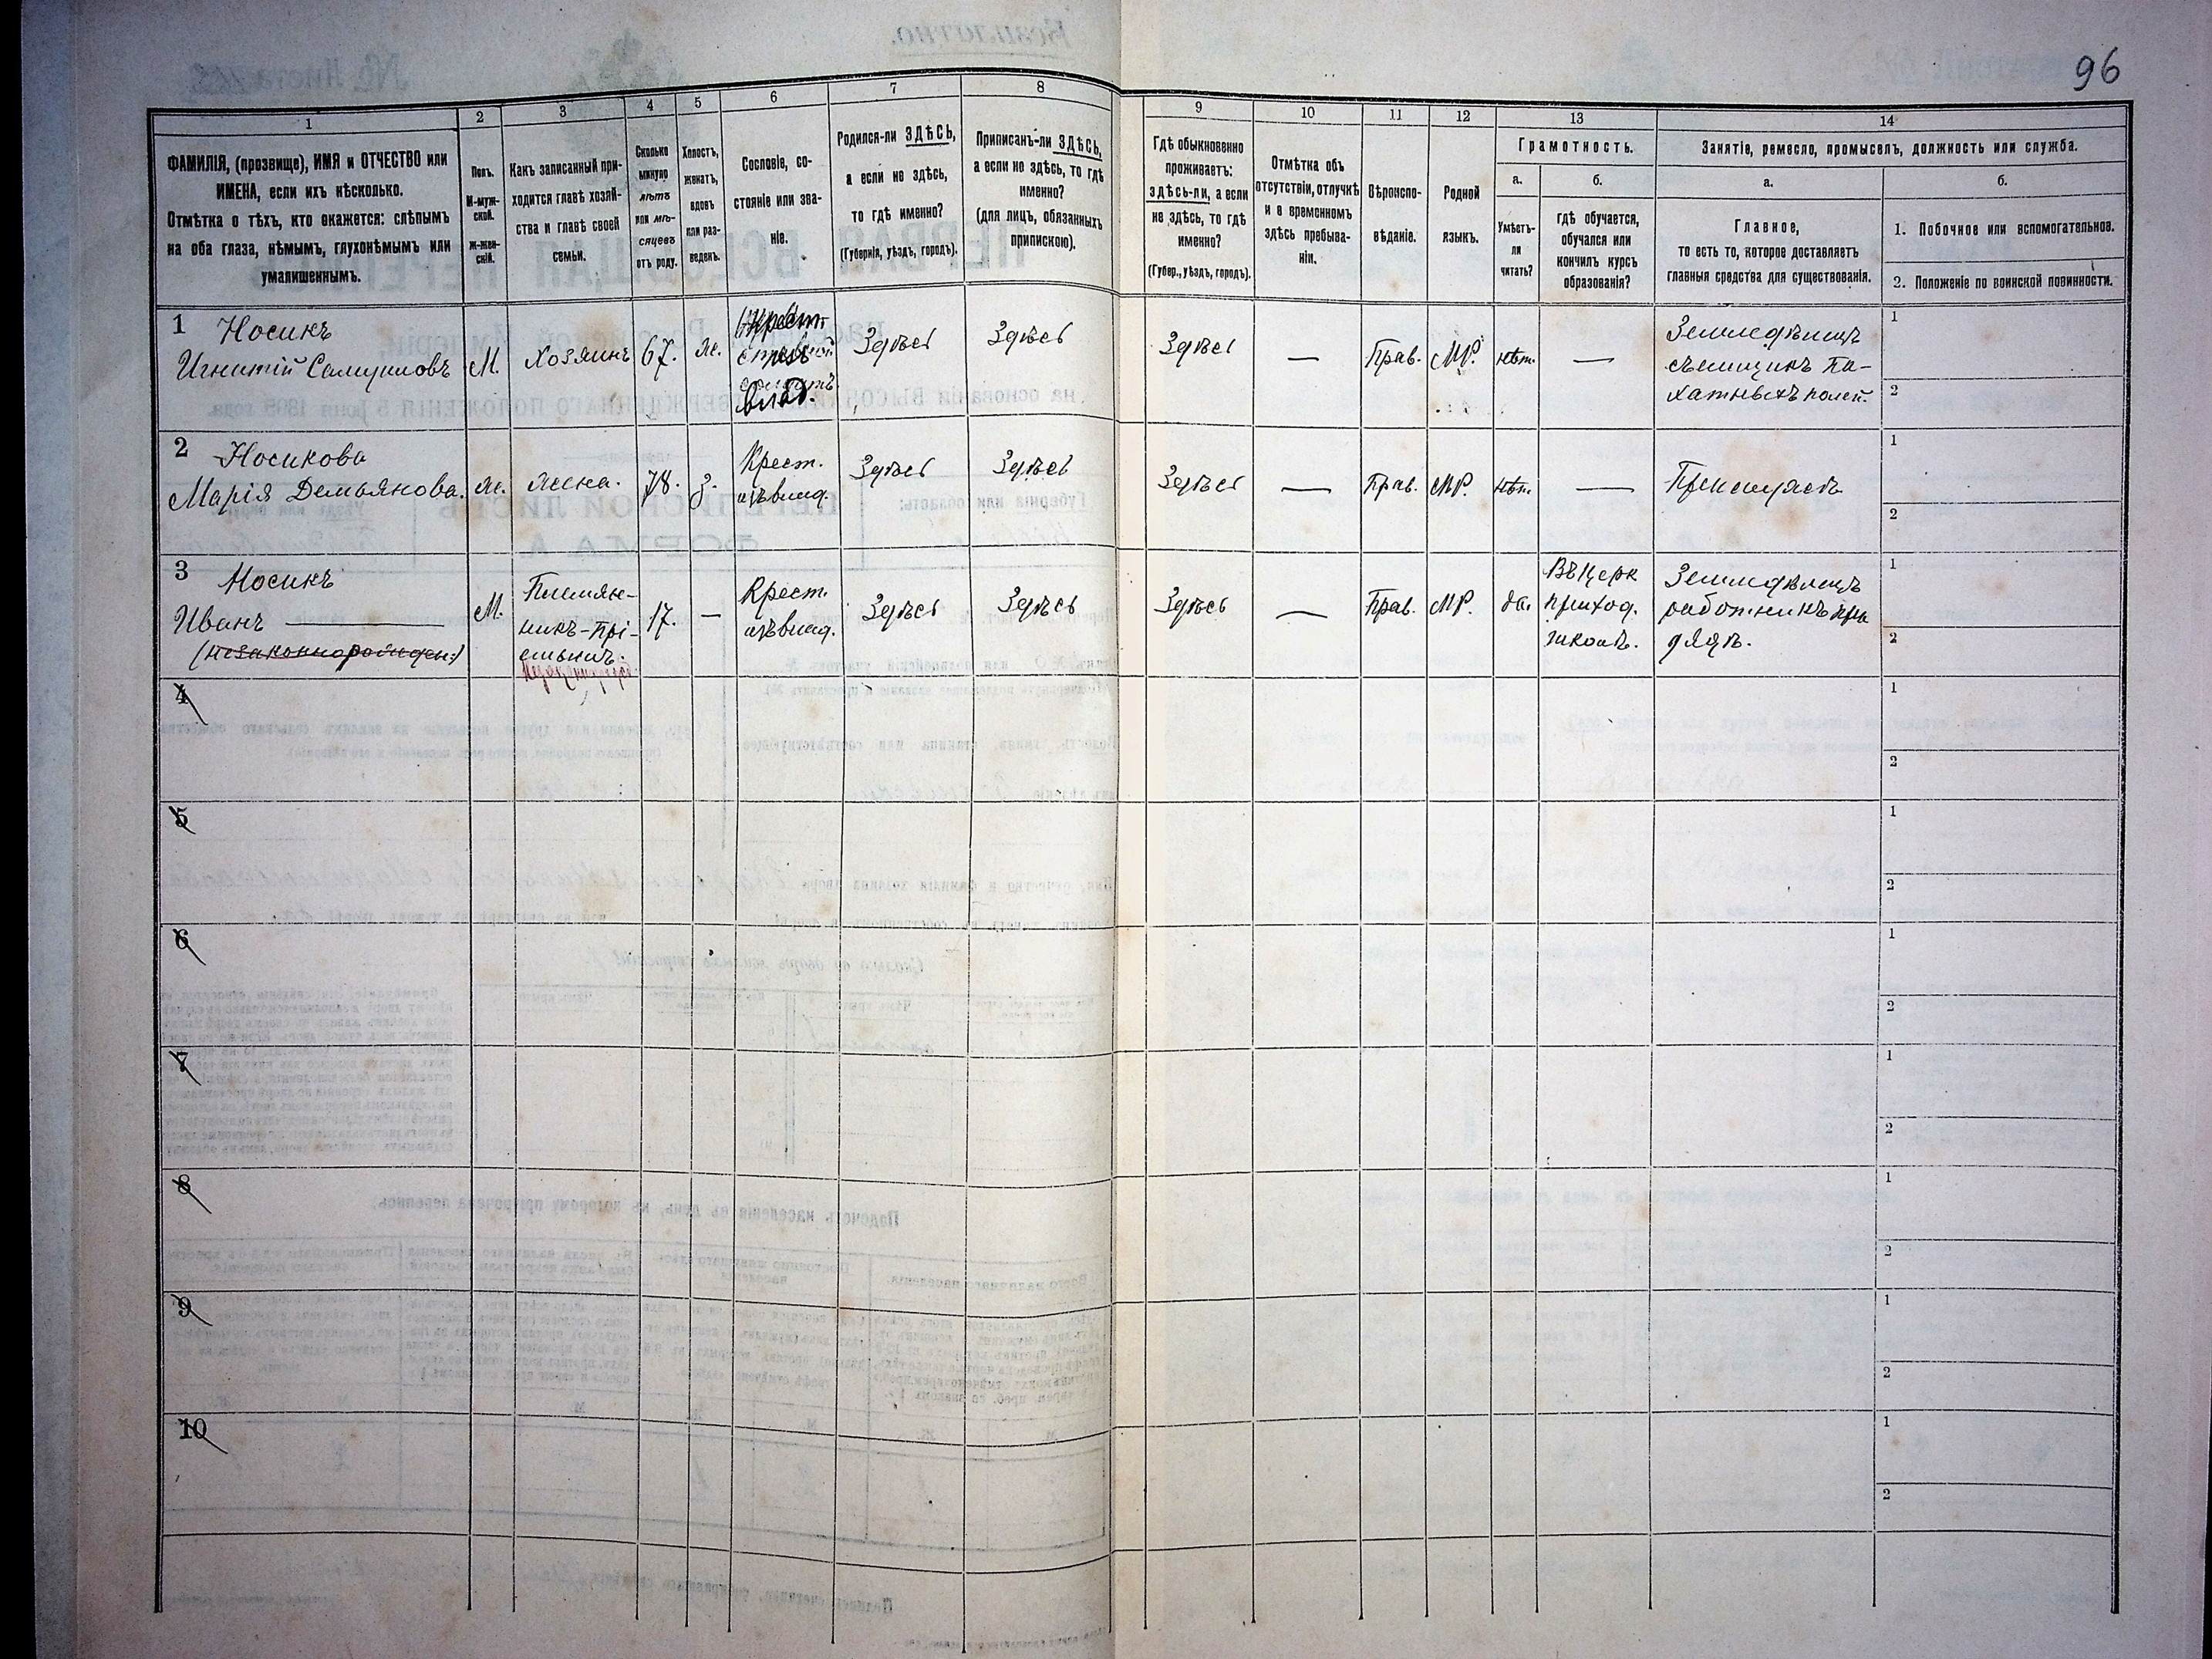 96
1
2
3
4
5
6
7
8
9
10
11
12
13
14
ФАМИЛІЯ, (прозвище), ИМЯ и ОТЧЕСТВО или
ИМЕНА, если ихъ нѣсколько.
Отмѣтка о тѣхъ, кто окажется: слѣпымъ
на оба глаза, нѣмымъ, глухонѣмымъ или
умалишеннымъ.
Полъ.
М-муж-
ской.
Ж-жен-
скій.
Какъ записанный при-
ходится главѣ хозяй-
ства и главѣ своей
семьи.
Сколько
минуло
лѣтъ
или мѣ-
сяцевъ
отъ роду.
Холостъ,
женатъ,
вдовъ
или раз-
веденъ.
Сословіе, со-
стояніе или зва-
ніе.
Родился-ли ЗДѢСЬ,
а если не здѣсь,
то гдѣ именно?
(Губернія, уѣздъ, городъ).
Приписанъ-ли ЗДѢСЬ,
а если не здѣсь, то гдѣ
именно?
(для лицъ, обязанныхъ
припискою).
Гдѣ обыкновенно
проживаетъ:
здѣсь-ли, а если
не здѣсь, то гдѣ
именно?
(Губер., уѣздъ, городъ).
Отмѣтка объ
отсутствіи, отлучкѣ
и о временномъ
здѣсь пребыва-
ніи.
Вѣроиспо-
вѣданіе.
Родной
языкъ.
Грамотность.
а.
Умѣетъ-
ли
читать?
б.
гдѣ обучается,
обучался или
кончилъ курсъ
образованія?
Занятіе, ремесло, промыселъ, должность или служба.
а.
Главное,
то есть то, которое доставляетъ
главныя средства для существованія.
б.
1. Побочное или вспомогательное.
2. Положеніе по воинской повинности.
1 Носикъ
Игнатій Самуиловъ
М.
Хозяинъ
67.
ж.
влад.
Здѣсь
Здѣсь
Здѣсь
—
Прав.
МР.
нѣт.
—
Земледѣлецъ
съемщикъ Па-
хатныхъ полей.
1
2
2 Носикова
Марія Демьянова.
ж.
жена.
78.
з.
Крест.
изъ влад.
Здѣсь
Здѣсь
Здѣсь
—
Прав.
МР.
нѣт.
—
1
2
3 Носикъ
Иванъ —
(незаконнорожден.)
М.
Племян-
никъ-прі-
емышъ.
17.
—
Крест.
изъ влад.
Здѣсь
Здѣсь
Здѣсь
—
Прав.
МР.
да.
Въ церк
приход.
школѣ.
Земледѣлецъ
работникъ при
дядѣ.
1
2
4
1
2
5
1
2
6
1
2
7
1
2
8
1
2
9
1
2
10
1
2